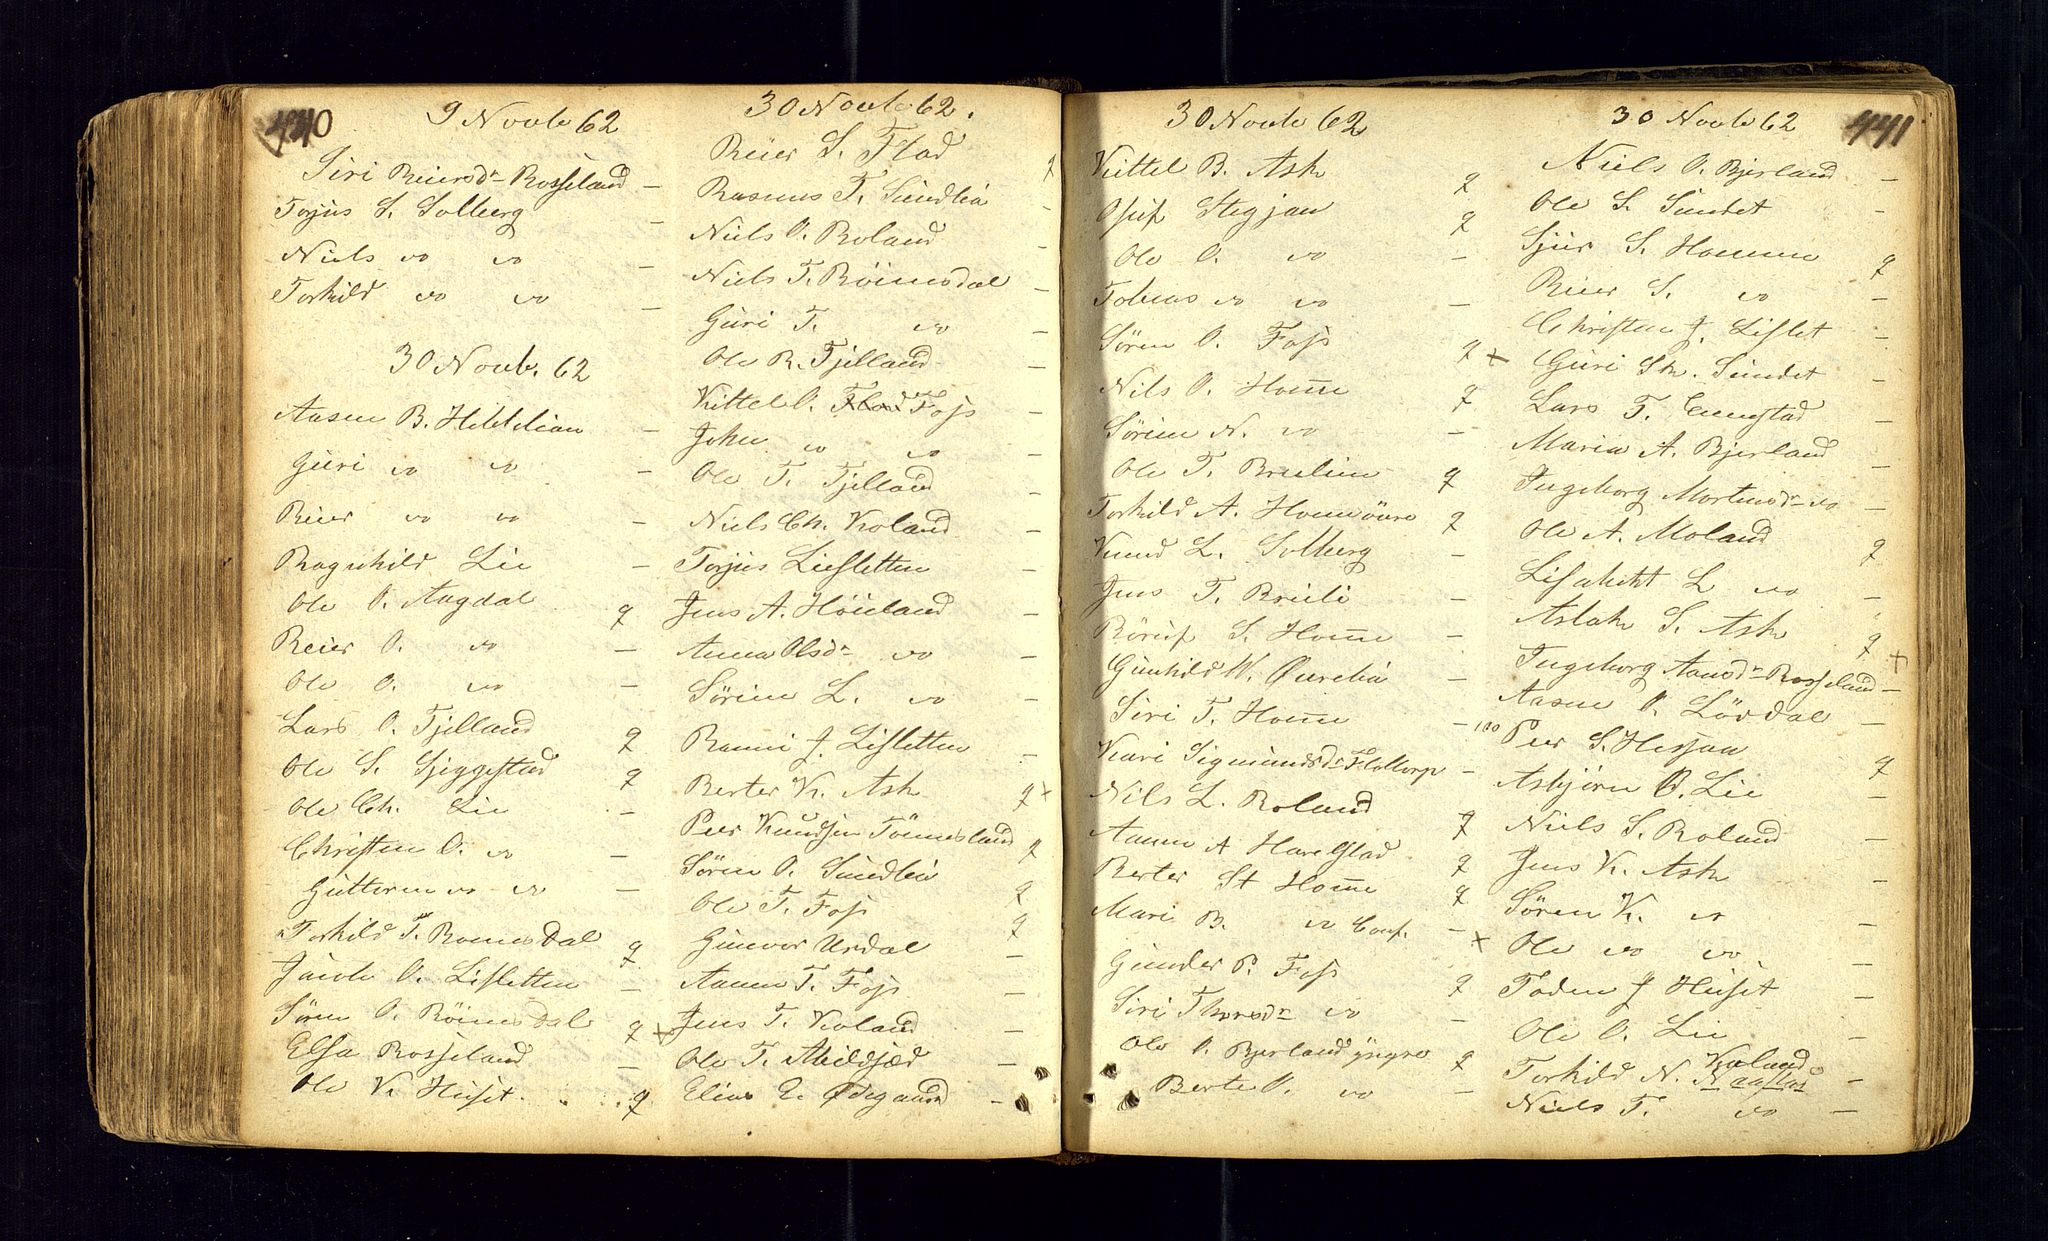 440
9 Novbr 62
Siri Reiersdr Rosseland -
Torjus S. Solberg -
Niels do do -
Torkild do do -
30 Novbr. 62
Aasen B. -
Guri do do -
Reier do do -
Ragnhild Lie -
Ole O. Augdal g
Reier O. do -
Ole O. do -
Lars O. Tjelland g
Ole S. Sjeggestad g
Ole Ch. Lie -
Christen O. do -
Guttorm do do -
Torkild T. Romesdal g
Jacob O. Lisletten -
Sören O. Röimesdal g
Elsa Rosseland -
Ole K. Huset g
30 Novbr 62.
Reier S. Flad g
Rasmus T. Sundlia -
Niels O. Roland -
Niels T. Röimesdal -
Guri T. do -
Ole R. Tjelland -
Kittel O. Flad Foss -
John do do -
Ole T. Tjelland -
Niels Ch. Koland -
Torjus Lisletten -
Jens A. Höieland -
Anna Olsdr do -
Sörine L. do -
Ranni J. Lisletten -
Berter K. Ask g x
Peer Knudsen Tönnesland g
Sören O. Sundlia g
Ole T. Foss g
Gunvor Urdal -
Aanen T. Foss -
x Jens T. Koland -
Ole T. Mildsjæd -
Elias E. Ødegaard -
441
30 Novbr 62
Kittel B. Ask g
Osuf Stegjan g
Ole O. do -
Tobias do do -
Sören O. Foss g
Nils O. Home g
Sörine N. do -
Ole T. Breilien g
Torkild A. Home övre g
Knud L. Solberg -
Jens T. Breili -
Röruf S. Home -
Gunhild W. Øvrelia -
Siri T. Home -
Kari Sigmundsdr Flottorp -
Nils L. Roland g
Aanen A Harelstad g
Berter St Home g
Mari B. do Conf. -
Gunder P. Foss g
Siri Thoresdr do -
Ole O. Bjerland yngre g
Berte O. do -
30 Novbr 62
Niels O. Bjerland -
Ole S. Sundet -
Sjur S. Homme g
Reier S. do -
Christen J. Lislet -
x Guri Sk. Sundet -
Lars T. -
Maria A. Bjerland -
Ingeborg Mortensdr do -
Ole A. Moland g
Lisabeht L do -
Aslak S. Ask g
Ingeborg Aanesdr Rosseland - x
Aasne O. Lövdal -
100 Peer S. Hesjaa g
Asbjörn O. Lie -
Niels S. Roland -
Jens K. Ask -
Sören K. do -
x Ole do do -
Taden J Huset -
Ole O. Lie -
Koland
Torkild N. Naaslas -
Niels T. do -